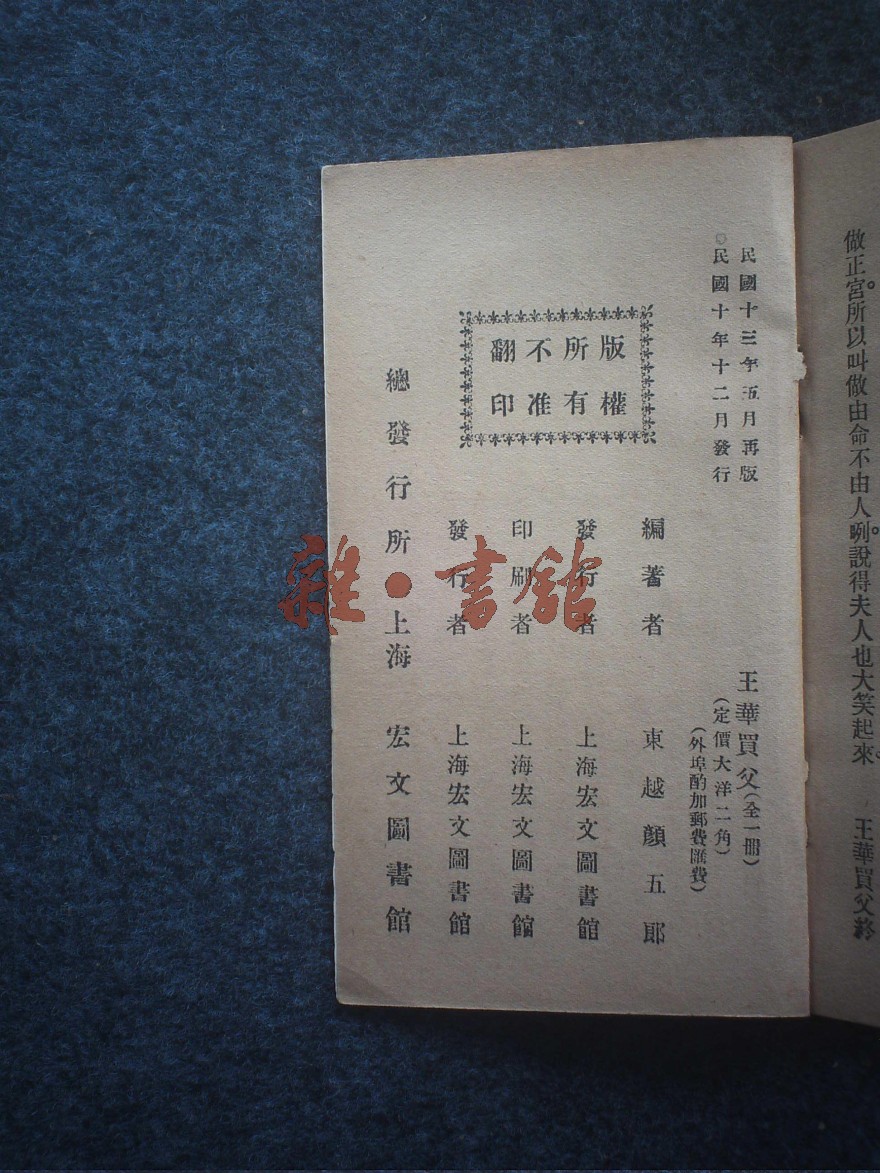 做正宮。所以叫做由命不由人咧。說得夫人也大笑起來。 王華買父終
民國十三年五月再版
○民國十年十二月發行
王華買父（全一冊）
（定價大洋二角）
（外埠酌加郵費匯費）
版權
所有
不准
翻印
編著者 東越顏五郎
發行者 上海宏文圖書館
印刷者 上海宏文圖書館
發行者 上海宏文圖書館
總發行所 上海 宏文圖書館
雜·書館